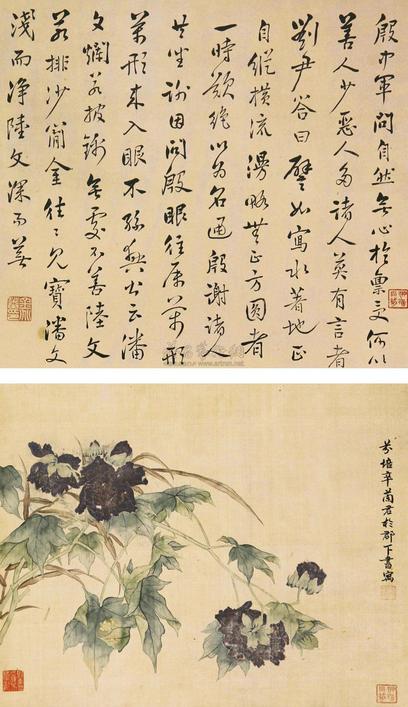 殷中軍問自然無心於稟受何以
善人少惡人多諸人莫有言者
劉尹答曰譬如寫水著地正
自縱橫流漫略無正方圓者
一時歎絕以為名通殷謝諸人
共坐謝因問殷眼往屬萬形
萬形來入眼不孫興公云潘
文爛若披錦無處不善陸文
若排沙簡金往々見寶潘文
淺而净陸文深而蕪
www.artron.net
君於郡下寫